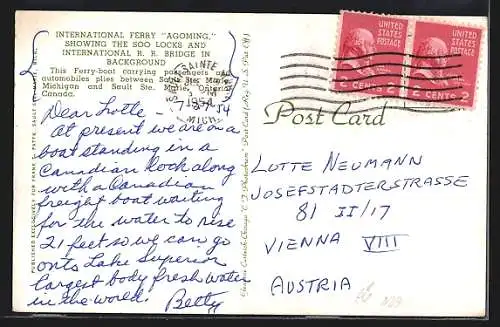 INTERNATIONAL FERRY "AGOMING,"
SHOWING THE SOO LOCKS AND
INTERNATIONAL R. R. BRIDGE IN
BACKGROUND
This Ferry-boat carrying passengers and
automobiles plies between Sault Ste. Marie,
Michigan and Sault Ste. Marie, Ontario,
Canada.
Dear Lotte -
At present we are on a
boat standing in a
Canadian lock along
with a Canadian
freight boat waiting
for the water to rise
21 feet so we can go
onto Lake Superior
largest body fresh water
in the world. Betty
PUBLISHED EXCLUSIVELY FOR
SAINTE
1954
MICH
UNITED
STATES
POSTAGE
2 CENTS 2
UNITED
STATES
POSTAGE
2 CENTS 2
Post Card
LOTTE NEUMANN
JOSEFSTÄDTERSTRASSE
81 II/17
VIENNA VIII
AUSTRIA